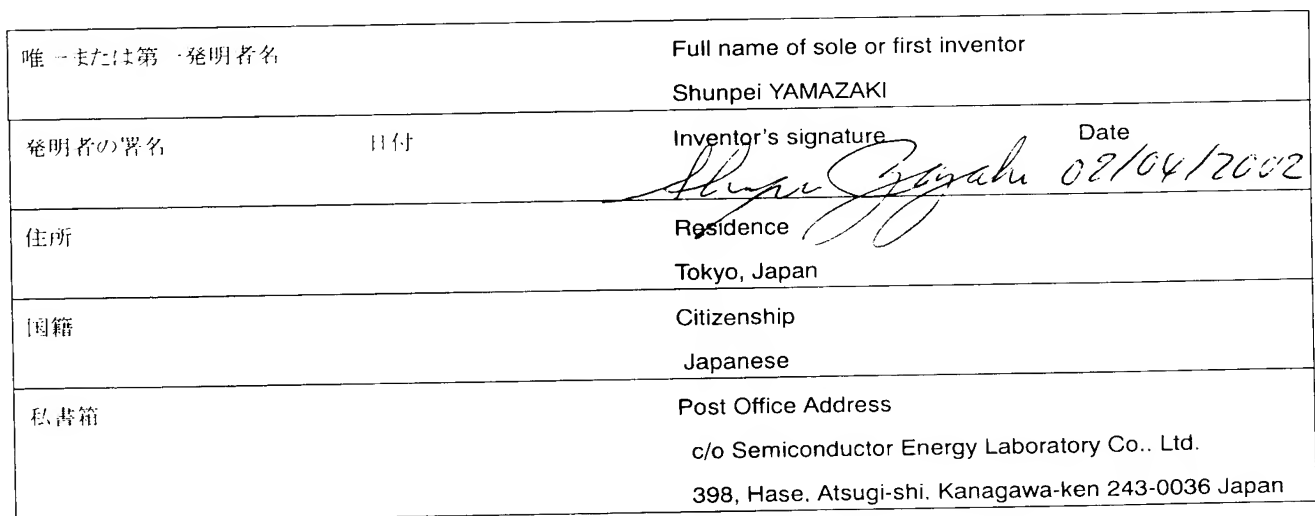 唯一または第一発明者名
Full name of sole or first inventor
Shunpei YAMAZAKI
発明者の署名 日付
Inventor's signature Date
02/04/2002
住所
Residence
Tokyo, Japan
国籍
Citizenship
Japanese
私書箱
Post Office Address
c/o Semiconductor Energy Laboratory Co.. Ltd.
398, Hase. Atsugi-shi. Kanagawa-ken 243-0036 Japan